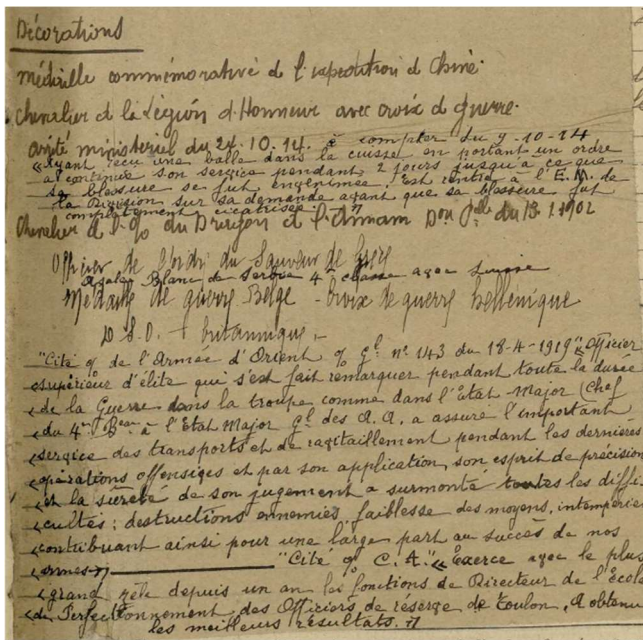 Décorations
médaille commémorative d l'expédition d Chine.
Chevalier d la Légion d'Honneur avec croix d guerre.
arrêté ministeriel du 24.10.14. à compter du 9-10-14
"Ayant reçu une balle dans la cuisse en portant un ordre
a continué son service pendant 2 jours jusqu'à ce que
sa blessure se fut envenimée. Est rentré à l'E.M. de
la Division sur sa demande avant que sa blessure fut
complètement cicatrisée."
Chevalier d l'% du Dragon d l'Annam Don du 13.1.1902
Officier de l'ordre du Sauveur de Grèce
Aigle Blanc de Serbie 4e classe avec
Médaille de guerre Belge - Croix de guerre hellenique
D.S.O. - britannique.-
"Cité % de l'Armée d'Orient % Gl n° 143 du 18-4-1919" "Officier
"supérieur d'élite qui s'est fait remarquer pendant toute la durée
"de la Guerre dans la troupe comme dans l'Etat-Major (Chef
"du 4me Beau à l'Etat Major Gl des A.A. a assuré l'important
"service des transports et de ravitaillement pendant les dernières
"opérations offensives et par son application, son esprit de précision
"et la sureté de son jugement a surmonté toutes les diffi-
"cultés: destructions ennemies faiblesse des moyens, intempérie
"contribuant ainsi pour une large part au succès de nos
"armes." "Cité % C.A." "Exerce avec le plus
"grand zèle depuis un an les fonctions de Directeur de l'école
"de Perfectionnement des Officiers de réserve de Toulon, A obtenu
les meilleurs résultats."